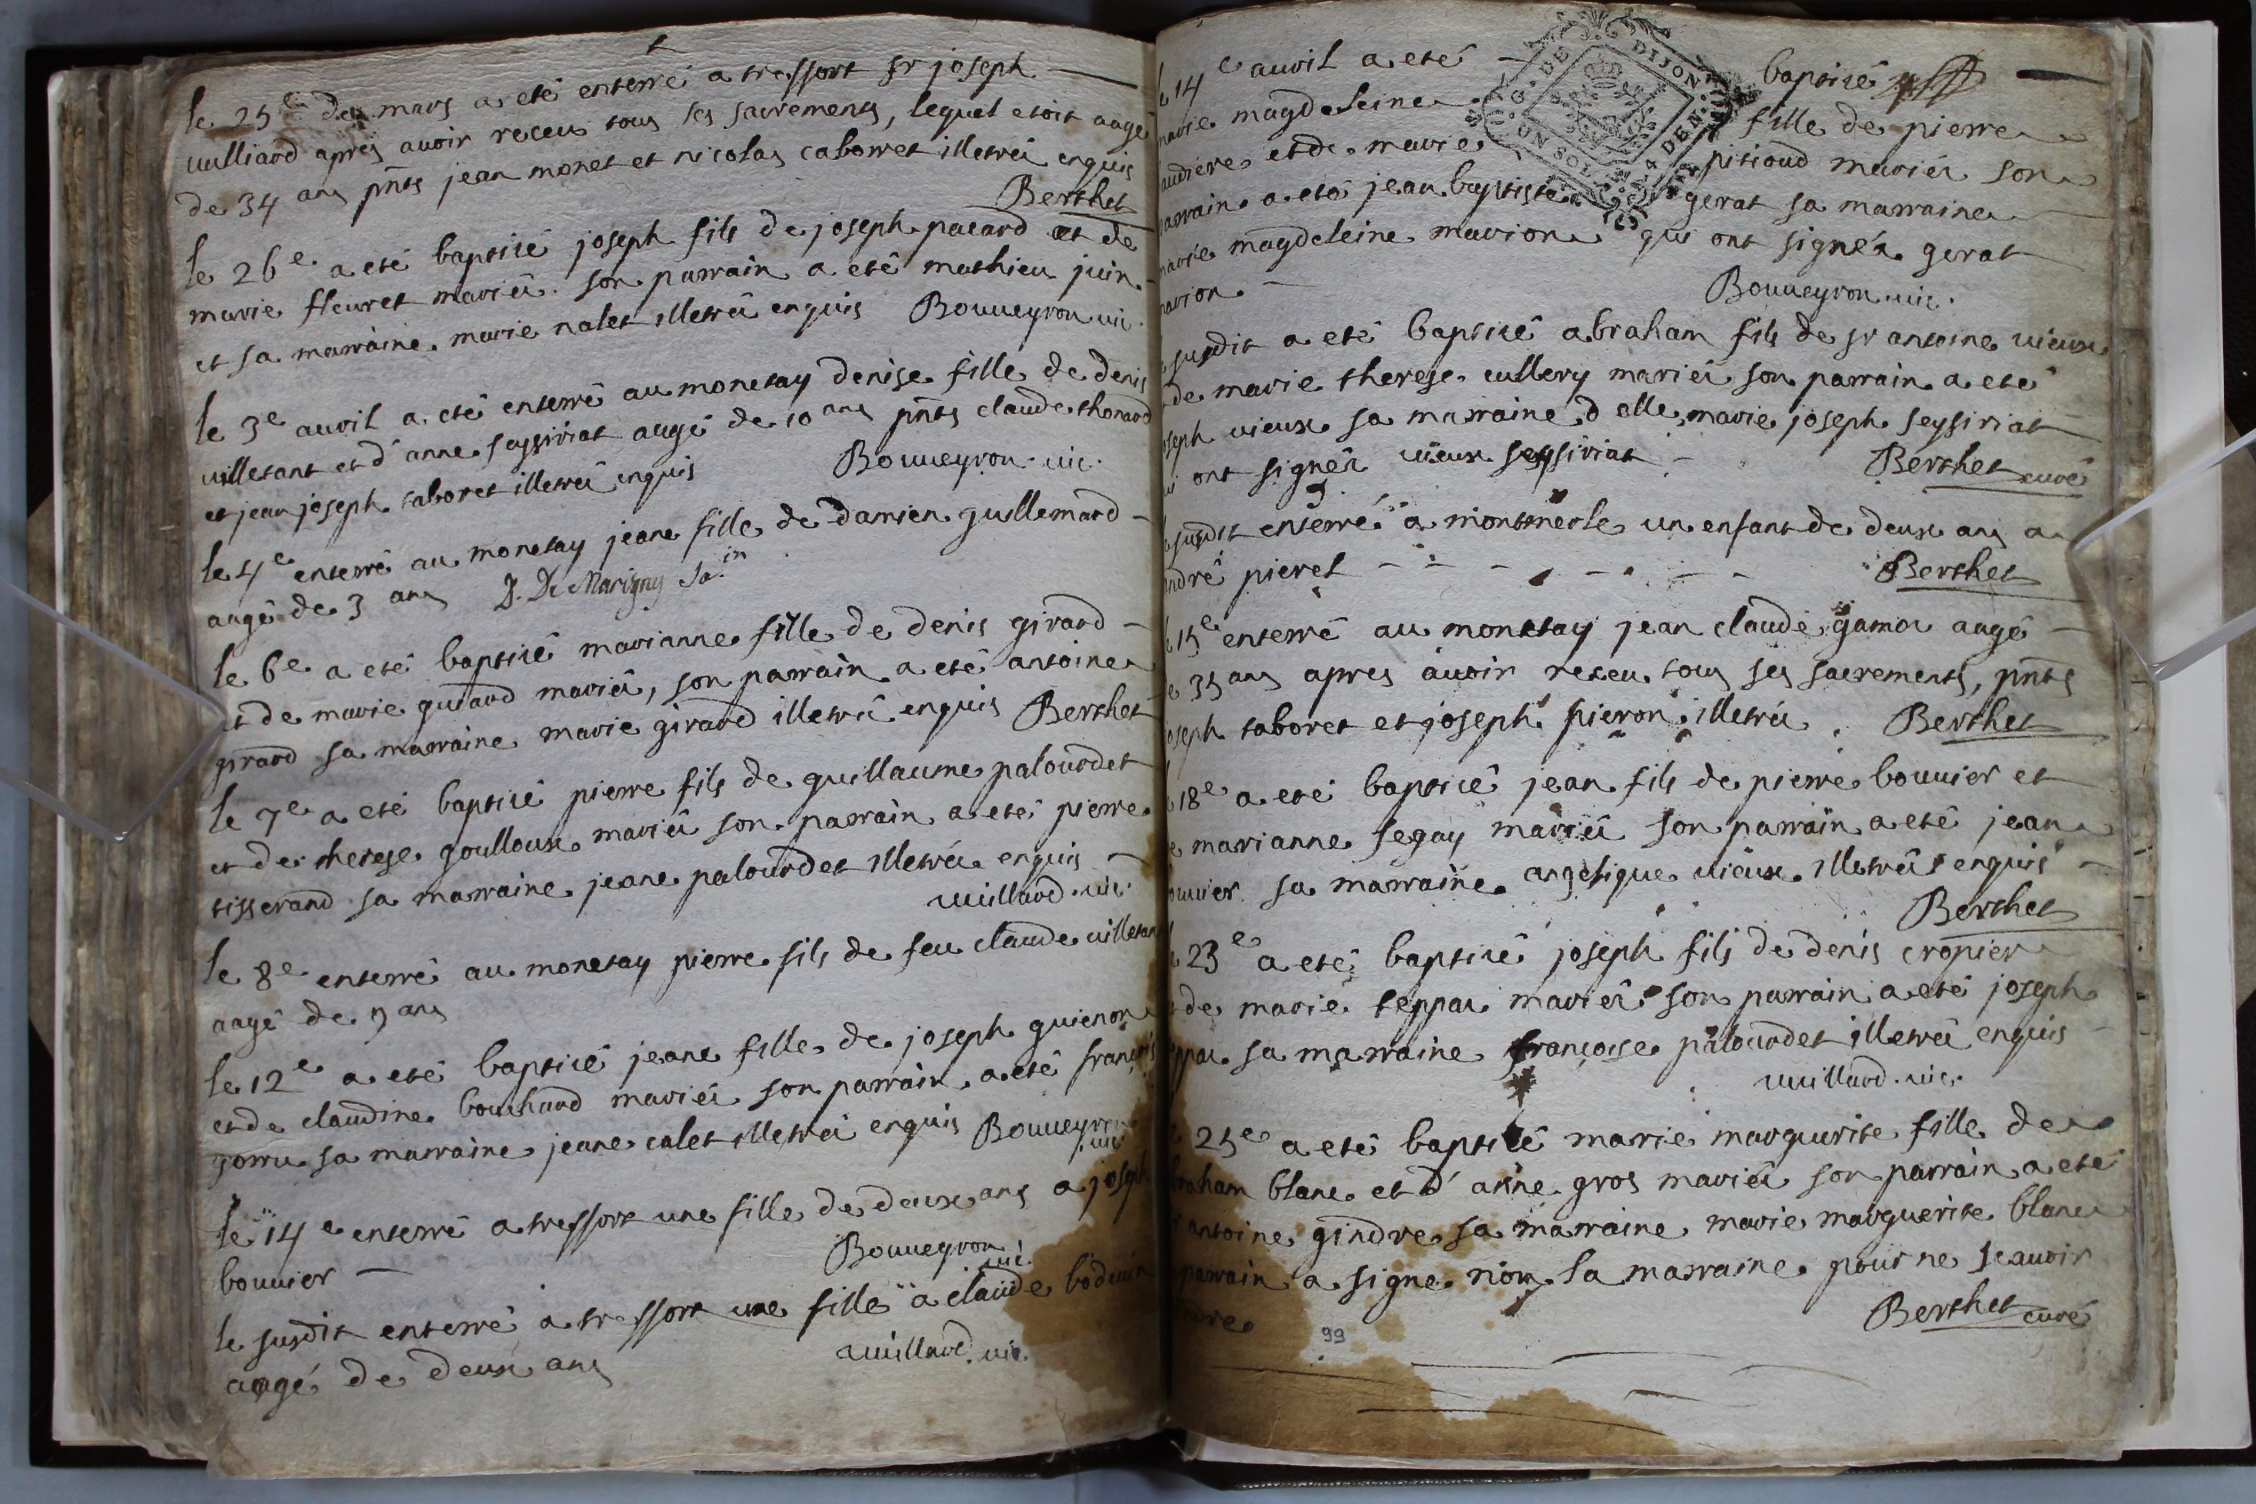 le 25e de mars a eté enterré a tressort sr joseph
vulliard apres avoir receu tous ses sacrements, lequel etoit aagé
de 34 ans pnts jean monet et nicolas caborret illetrés enquis
Berthet
le 26e a eté baptisé joseph fils de joseph pacard et de
marie fleuret mariés. son parrain a eté mathieu juin
et sa marraine marie nalet illetrés enquis Bouveyron vic.
le 3e avril a eté enterré au monetay denise fille de denis
villetant et d'anne seyssiriat aagé de 10 ans pnts claude thonard
et jean joseph taboret illetrés enquis Bouveyron vic.
le 4e enterré au monetay jeane fille de damien guillemard
aagé de 3 ans D. De Marigny Sa.in
le 6e a eté baptisé marianne fille de denis girard
et de marie guiard mariés, son parrain a eté antoine
girard sa marraine marie girard illetrés enquis Berthet
le 7e a eté baptisé pierre fils de guillaume palourdet
et de therese goulloux mariés son parrain a eté pierre
tisserand sa marraine jeane palourdet illetrés enquis
vuillard vic.
le 8e enterré au monetay pierre fils de feu claude villetant
aagé de 9 ans
le 12e a eté baptisé jeane fille de joseph guienon
et de claudine bouchard mariés son parrain a eté françois
gorru sa marraine jeane calet illetrés enquis Bouveyron
vic.
le 14e enterré a tressort une fille de deux ans a joseph
bouvier
Bouveyron
vic.
le susdit enterré a tressort une fille a claude boduin
aagé de deux ans vuillard vic.
le 14e avril a eté baptisé
marie magdeleine fille de pierre
audiere et de marie pitioud mariés son
parrain a eté jean baptiste gerat sa marraine
marie magdeleine marion qui ont signés gerat
marion.
Bouveyron vic.
G. DE DIJON
UN SOL 4 DEN
susdit a eté baptisé abraham fils de sr antoine vieux
de marie therese cullery mariés son parrain a eté
joseph vieux sa marraine delle marie joseph seyssiriat
qui ont signés vieux seyssiriat
Berthet curé
susdit enterré a montmerle un enfant de deux ans a
andré pieret
Berthet
15e enterré au monetay jean claude gamon aagé
de 35 ans apres avoir receu tous ses sacrements, pnts
joseph taboret et joseph pieron illetrés Berthet
18e a eté baptisé jean fils de pierre bouvier et
de marianne segay mariés son parrain a eté jean
bouvier sa marraine angelique vieux illetrés enquis
Berthet
23e a eté baptisé joseph fils de denis cropier
de marie teppaz mariés son parrain a eté joseph
teppaz sa marraine françoise palourdet illetrés enquis
vuillard vic.
25e a eté baptisé marie marguerite fille de
abraham blanc et d'anne gros mariés son parrain a eté
antoine gindre sa marraine marie marguerite blanc
parrain a signe non la marraine pour ne scavoir
gindre
Berthet curé
99